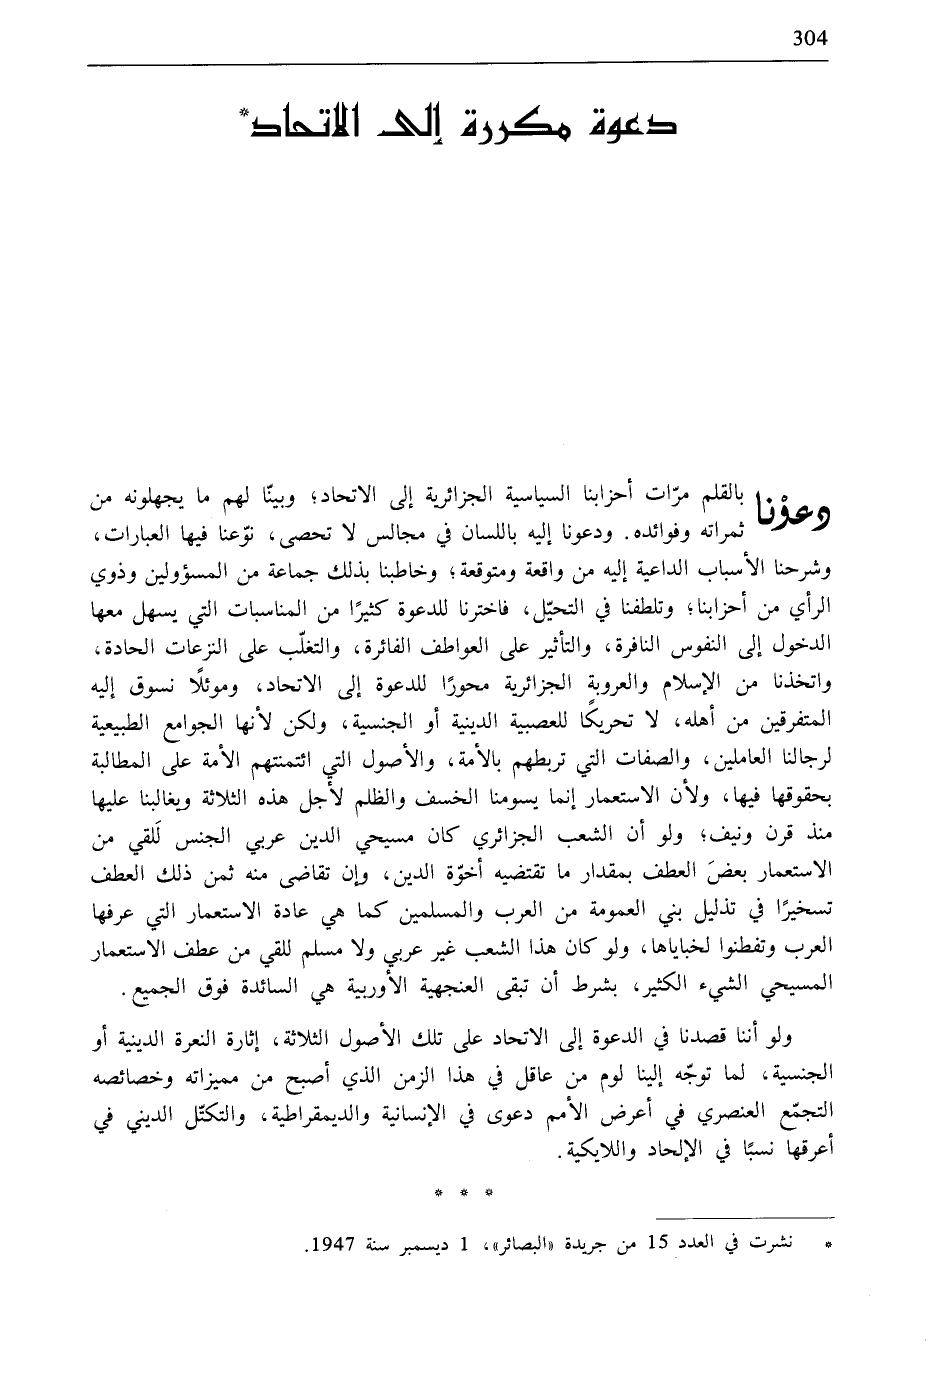 304
دعوة مكررة إلى الاتحاد*
دعَوْنا بالقلم مرّات أحزابنا السياسية الجزائرية إلى الاتحاد؛ وبينّا لهم ما يجهلونه من
ثمراته وفوائده. ودعونا إليه باللسان في مجالس لا تحصى، نوّعنا فيها العبارات،
وشرحنا الأسباب الداعية إليه من واقعة ومتوقعة؛ وخاطبنا بذلك جماعة من المسؤولين وذوي
الرأي من أحزابنا؛ وتلطفنا في التحيّل، فاخترنا للدعوة كثيرًا من المناسبات التي يسهل معها
الدخول إلى النفوس النافرة، والتأثير على العواطف الفائرة، والتغلّب على النزعات الحادة،
واتخذنا من الإسلام والعروبة الجزائرية محورًا للدعوة إلى الاتحاد، وموئلًا نسوق إليه
المتفرقين من أهله، لا تحريكًا للعصبية الدينية أو الجنسية، ولكن لأنها الجوامع الطبيعية
لرجالنا العاملين، والصفات التي تربطهم بالأمة، والأصول التي ائتمنتهم الأمة على المطالبة
بحقوقها فيها، ولأن الاستعمار إنما يسومنا الخسف والظلم لأجل هذه الثلاثة ويغالبنا عليها
منذ قرن ونيف؛ ولو أن الشعب الجزائري كان مسيحي الدين عربي الجنس لَلقي من
الاستعمار بعضَ العطف بمقدار ما تقتضيه أخوّة الدين، وإن تقاضى منه ثمن ذلك العطف
تسخيرًا في تذليل بني العمومة من العرب والمسلمين كما هي عادة الاستعمار التي عرفها
العرب وتفطنوا لخباياها، ولو كان هذا الشعب غير عربي ولا مسلم للقي من عطف الاستعمار
المسيحي الشيء الكثير، بشرط أن تبقى العنجهية الأوربية هي السائدة فوق الجميع.
ولو أننا قصدنا في الدعوة إلى الاتحاد على تلك الأصول الثلاثة، إثارة النعرة الدينية أو
الجنسية، لما توجّه إلينا لوم من عاقل في هذا الزمن الذي أصبح من مميزاته وخصائصه
التجمّع العنصري في أعرض الأمم دعوى في الإنسانية والديمقراطية، والتكتّل الديني في
أعرقها نسبًا في الإلحاد واللايكية.
* * *
* نشرت في العدد 15 من جريدة «البصائر»، 1 ديسمبر سنة 1947.